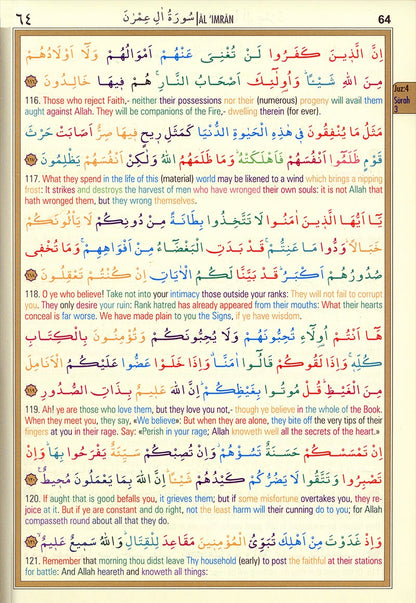 ٦٤ سُورَةُ اٰلِ عِمْرٰنَ | ÂL 'IMRÂN 64
Juz:4
Surah
3
اِنَّ الَّذٖينَ كَفَرُوا لَنْ تُغْنِىَ عَنْهُمْ اَمْوَالُهُمْ وَلَٓا اَوْلَادُهُمْ
مِنَ اللّٰهِ شَيْـًٔا وَاُولٰٓئِكَ اَصْحَابُ النَّارِ هُمْ فٖيهَا خَالِدُونَ ﴿١١٦﴾
116. Those who reject Faith,- neither their possessions nor their (numerous) progeny will avail them
aught against Allah. They will be companions of the Fire,- dwelling therein (for ever).
مَثَلُ مَا يُنْفِقُونَ فٖى هٰذِهِ الْحَيٰوةِ الدُّنْيَا كَمَثَلِ رٖيحٍ فٖيهَا صِرٌّ اَصَابَتْ حَرْثَ
قَوْمٍ ظَلَمُٓوا اَنْفُسَهُمْ فَاَهْلَكَتْهُ وَمَا ظَلَمَهُمُ اللّٰهُ وَلٰكِنْ اَنْفُسَهُمْ يَظْلِمُونَ ﴿١١٧﴾
117. What they spend in the life of this (material) world may be likened to a wind which brings a nipping
frost: It strikes and destroys the harvest of men who have wronged their own souls: it is not Allah that
hath wronged them, but they wrong themselves.
يَٓا اَيُّهَا الَّذٖينَ اٰمَنُوا لَا تَتَّخِذُوا بِطَانَةً مِنْ دُونِكُمْ لَا يَأْلُونَكُمْ
خَبَالًا وَدُّوا مَا عَنِتُّمْ قَدْ بَدَتِ الْبَغْضَٓاءُ مِنْ اَفْوَاهِهِمْ وَمَا تُخْفٖى
صُدُورُهُمْ اَكْبَرُ قَدْ بَيَّنَّا لَكُمُ الْاٰيَاتِ اِنْ كُنْتُمْ تَعْقِلُونَ ﴿١١٨﴾
118. O ye who believe! Take not into your intimacy those outside your ranks: They will not fail to corrupt
you. They only desire your ruin: Rank hatred has already appeared from their mouths: What their hearts
conceal is far worse. We have made plain to you the Signs, if ye have wisdom.
هَٓا اَنْتُمْ اُولَٓاءِ تُحِبُّونَهُمْ وَلَا يُحِبُّونَكُمْ وَتُؤْمِنُونَ بِالْكِتَابِ
كُلِّهٖ وَاِذَا لَقُوكُمْ قَالُٓوا اٰمَنَّا وَاِذَا خَلَوْا عَضُّوا عَلَيْكُمُ الْاَنَامِلَ
مِنَ الْغَيْظِ قُلْ مُوتُوا بِغَيْظِكُمْ اِنَّ اللّٰهَ عَلٖيمٌ بِذَاتِ الصُّدُورِ ﴿١١٩﴾
119. Ah! ye are those who love them, but they love you not,- though ye believe in the whole of the Book.
When they meet you, they say, «We believe»: But when they are alone, they bite off the very tips of their
fingers at you in their rage. Say: «Perish in your rage; Allah knoweth well all the secrets of the heart.»
اِنْ تَمْسَسْكُمْ حَسَنَةٌ تَسُؤْهُمْ وَاِنْ تُصِبْكُمْ سَيِّئَةٌ يَفْرَحُوا بِهَا وَاِنْ
تَصْبِرُوا وَتَتَّقُوا لَا يَضُرُّكُمْ كَيْدُهُمْ شَيْـًٔا اِنَّ اللّٰهَ بِمَا يَعْمَلُونَ مُحٖيطٌ ﴿١٢٠﴾
120. If aught that is good befalls you, it grieves them; but if some misfortune overtakes you, they re-
joice at it. But if ye are constant and do right, not the least harm will their cunning do to you; for Allah
compasseth round about all that they do.
وَاِذْ غَدَوْتَ مِنْ اَهْلِكَ تُبَوِّئُ الْمُؤْمِنٖينَ مَقَاعِدَ لِلْقِتَالِ وَاللّٰهُ سَمٖيعٌ عَلٖيمٌ ﴿١٢١﴾
121. Remember that morning thou didst leave Thy household (early) to post the faithful at their stations
for battle: And Allah heareth and knoweth all things: